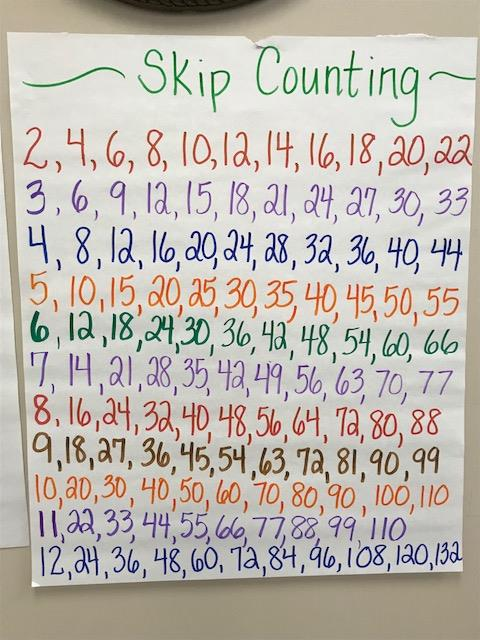 Skip Counting
2, 4, 6, 8, 10, 12, 14, 16, 18, 20, 22
3, 6, 9, 12, 15, 18, 21, 24, 27, 30, 33
4, 8, 12, 16, 20, 24, 28, 32, 36, 40, 44
5, 10, 15, 20, 25, 30, 35, 40, 45, 50, 55
6, 12, 18, 24, 30, 36, 42, 48, 54, 60, 66
7, 14, 21, 28, 35, 42, 49, 56, 63, 70, 77
8, 16, 24, 32, 40, 48, 56, 64, 72, 80, 88
9, 18, 27, 36, 45, 54, 63, 72, 81, 90, 99
10, 20, 30, 40, 50, 60, 70, 80, 90, 100, 110
11, 22, 33, 44, 55, 66, 77, 88, 99, 110
12, 24, 36, 48, 60, 72, 84, 96, 108, 120, 132